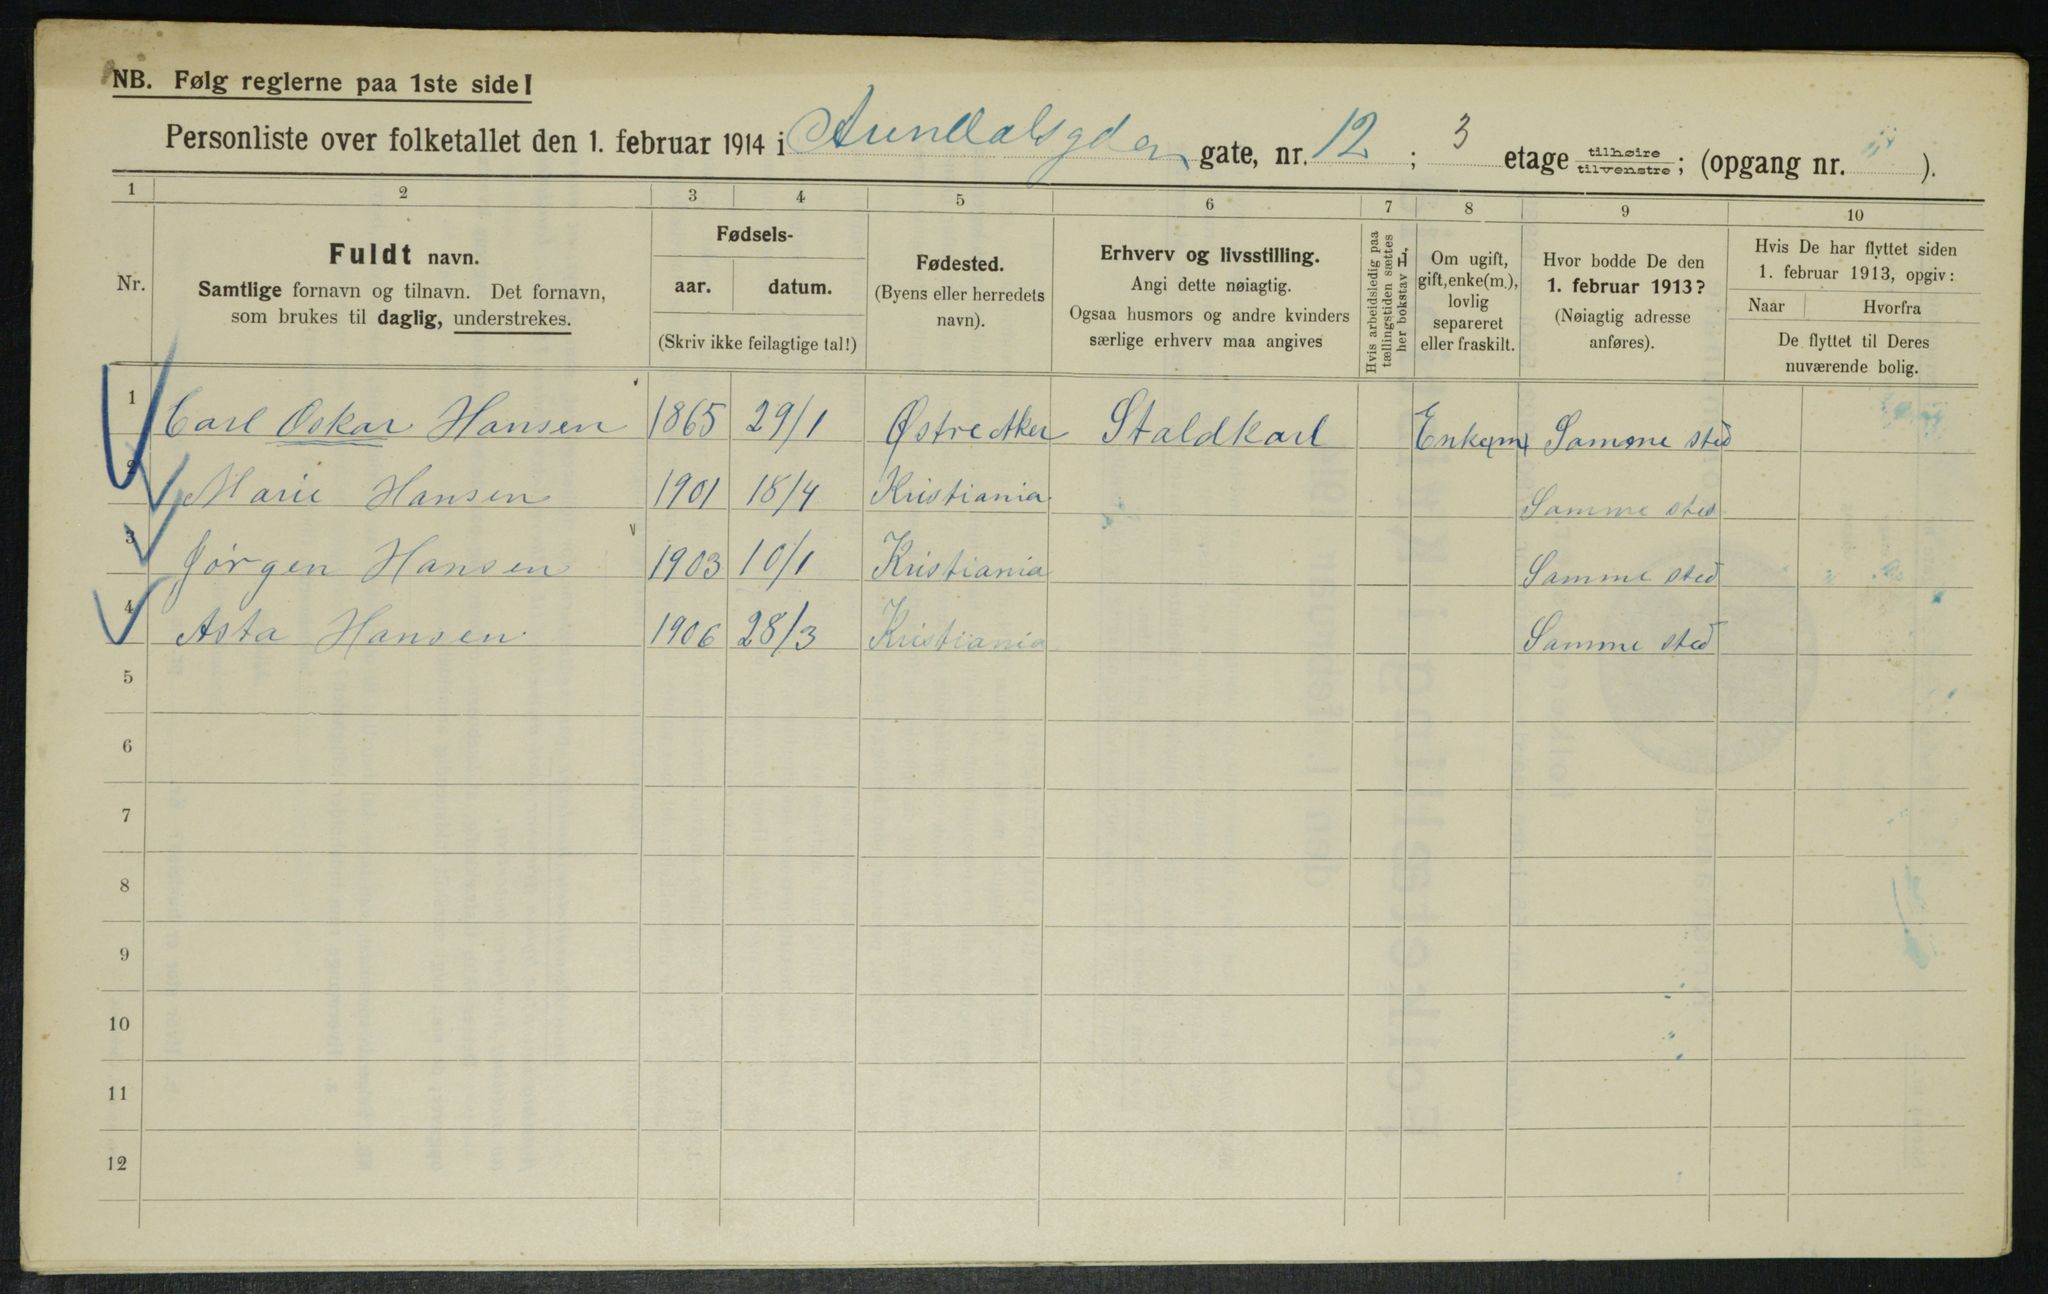 NB. Følg reglerne paa 1ste side!
Personliste over folketallet den 1. februar 1914 i Arendalsgden gate, nr. 12 ; 3 etage tilhøire/tilvenstre; (opgang nr. ).
1 2 3 4 5 6 7 8 9 10
Nr.
Fuldt navn.
Samtlige fornavn og tilnavn. Det fornavn,
som brukes til daglig, understrekes.
Fødsels-
aar. datum.
(Skriv ikke feilagtige tal!)
Fødested.
(Byens eller herredets
navn).
Erhverv og livsstilling.
Angi dette nøiagtig.
Ogsaa husmors og andre kvinders
særlige erhverv maa angives
Hvis arbeidsledig paa
tællingstiden sættes
her bokstav L,
Om ugift,
gift, enke(m.),
lovlig
separeret
eller fraskilt.
Hvor bodde De den
1. februar 1913?
(Nøiagtig adresse
anføres).
Hvis De har flyttet siden
1. februar 1913, opgiv:
Naar Hvorfra
De flyttet til Deres
nuværende bolig.
1 Carl Oskar Hansen 1865 29/1 Østre Aker Staldkarl Enke(m) Samme sted
2 Marie Hansen 1901 18/4 Kristiania Samme sted
3 Jørgen Hansen 1903 10/1 Kristiania Samme sted
4 Asta Hansen 1906 28/3 Kristiania Samme sted
5
6
7
8
9
10
11
12